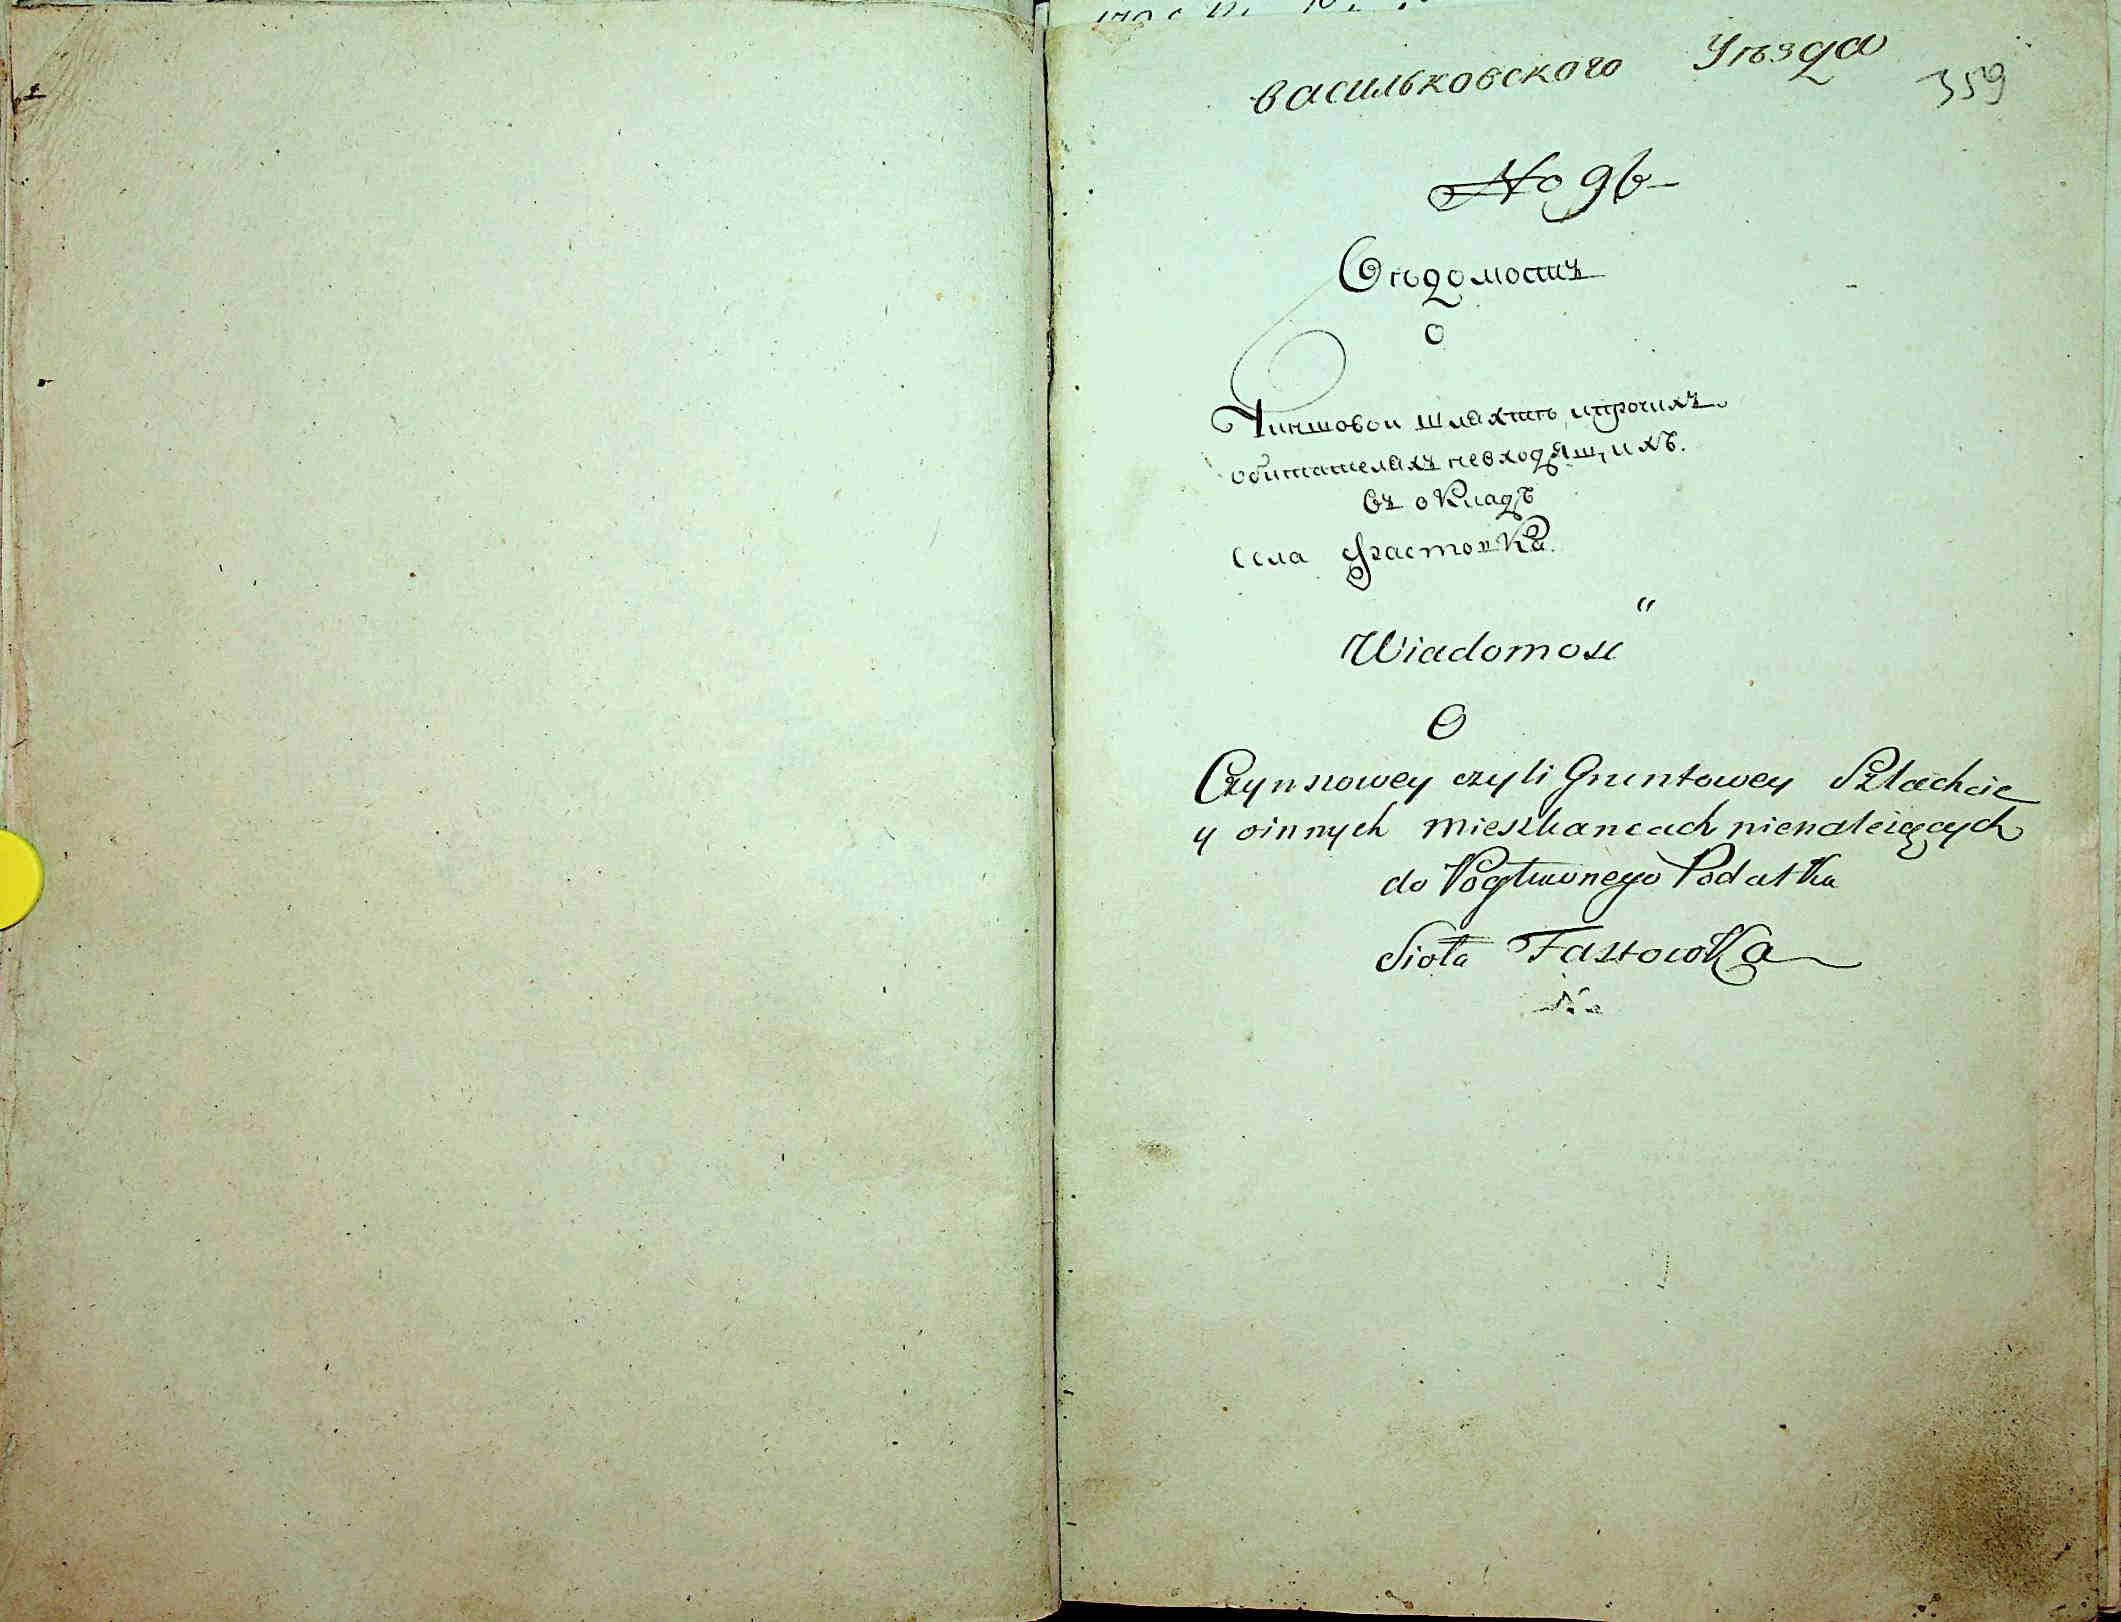 васильковского Уѣзда
359
No 96
Вѣдомость
о
Чиншовои шляхтѣ, ипрочихъ
обитателяхъ невходящихъ
въ окладъ
села Фастовка
Wiadomość
O
Czynszowey czyli Gruntowey Szlachcie
y oinnych Mieszkancach nienależących
do Pogłownego Podatku
Sioła Fastowka